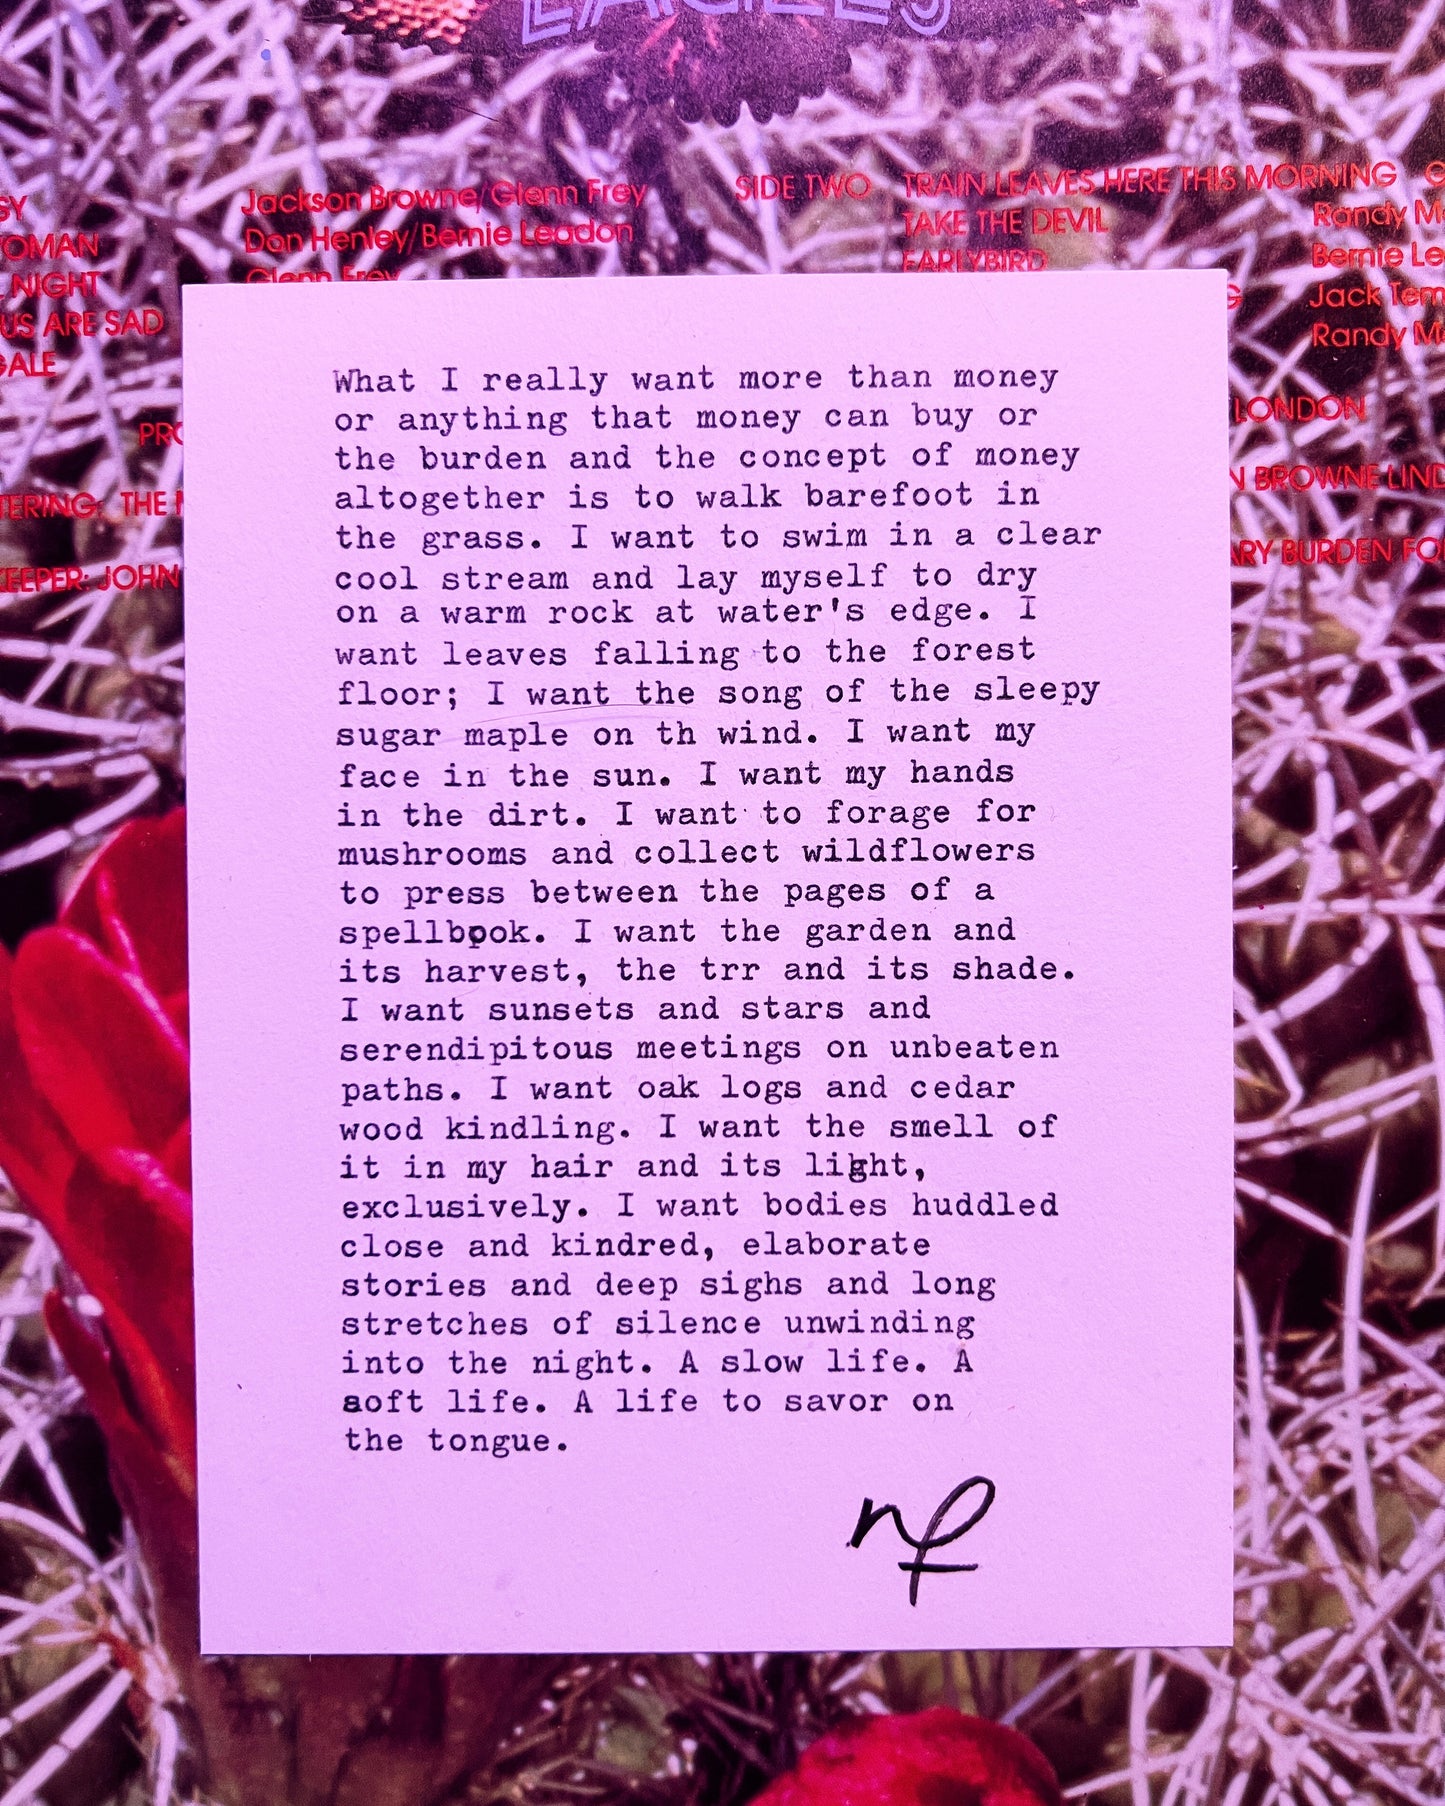 EAGLES
Jackson Browne/Glenn Frey
SIDE TWO
TRAIN LEAVES HERE THIS MORNING
Don Henley/Bernie Leadon
TAKE THE DEVIL
Randy
NIGHT
Glenn Frey
EARLYBIRD
Bernie
US ARE SAD
Jack
Randy
LONDON
THE
BROWNE
KEEPER: JOHN
BURDEN
What I really want more than money
or anything that money can buy or
the burden and the concept of money
altogether is to walk barefoot in
the grass. I want to swim in a clear
cool stream and lay myself to dry
on a warm rock at water's edge. I
want leaves falling to the forest
floor; I want the song of the sleepy
sugar maple on th wind. I want my
face in the sun. I want my hands
in the dirt. I want to forage for
mushrooms and collect wildflowers
to press between the pages of a
spellbook. I want the garden and
its harvest, the trr and its shade.
I want sunsets and stars and
serendipitous meetings on unbeaten
paths. I want oak logs and cedar
wood kindling. I want the smell of
it in my hair and its light,
exclusively. I want bodies huddled
close and kindred, elaborate
stories and deep sighs and long
stretches of silence unwinding
into the night. A slow life. A
soft life. A life to savor on
the tongue.